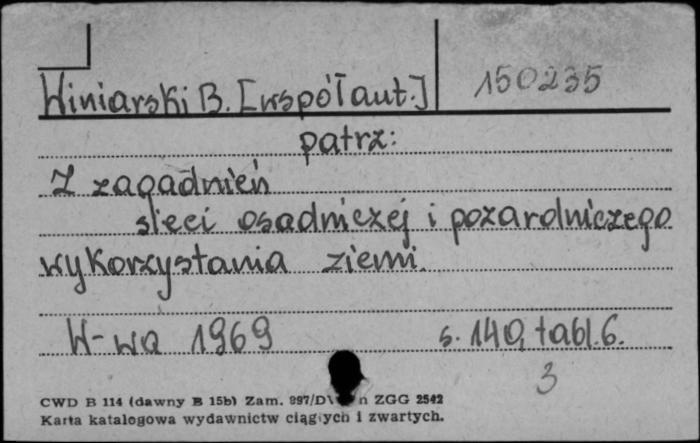 Winiarski B. [współaut.] 150235
patrz:
Z zagadnień
sieci osadniczej i pozarolniczego
wykorzystania ziemi.
W-wa 1969 s. 140, tabl. 6.
3
CWD B 114 (dawny B 15b) Zam. 997/D n ZGG 2542
Karta katalogowa wydawnictw ciągłych i zwartych.